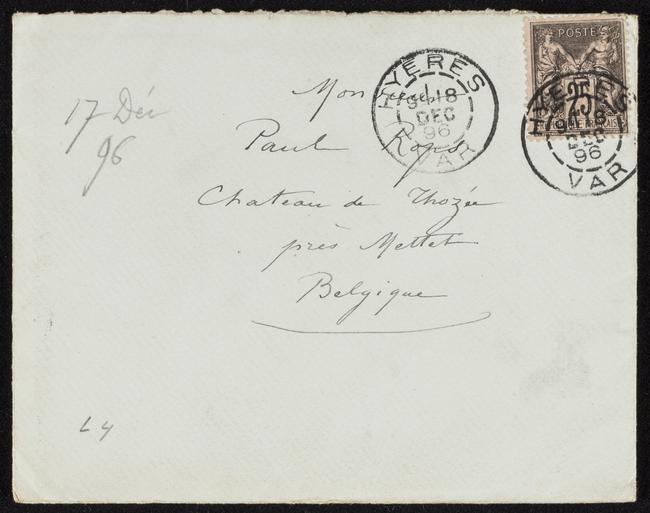 17 Déc
96
Monsieur
Paul Rops
Chateau de Thozée
près Mettet
Belgique
HYERES
18
DEC
96
VAR
POSTE
25
HYERES
18
DEC
96
VAR
L4